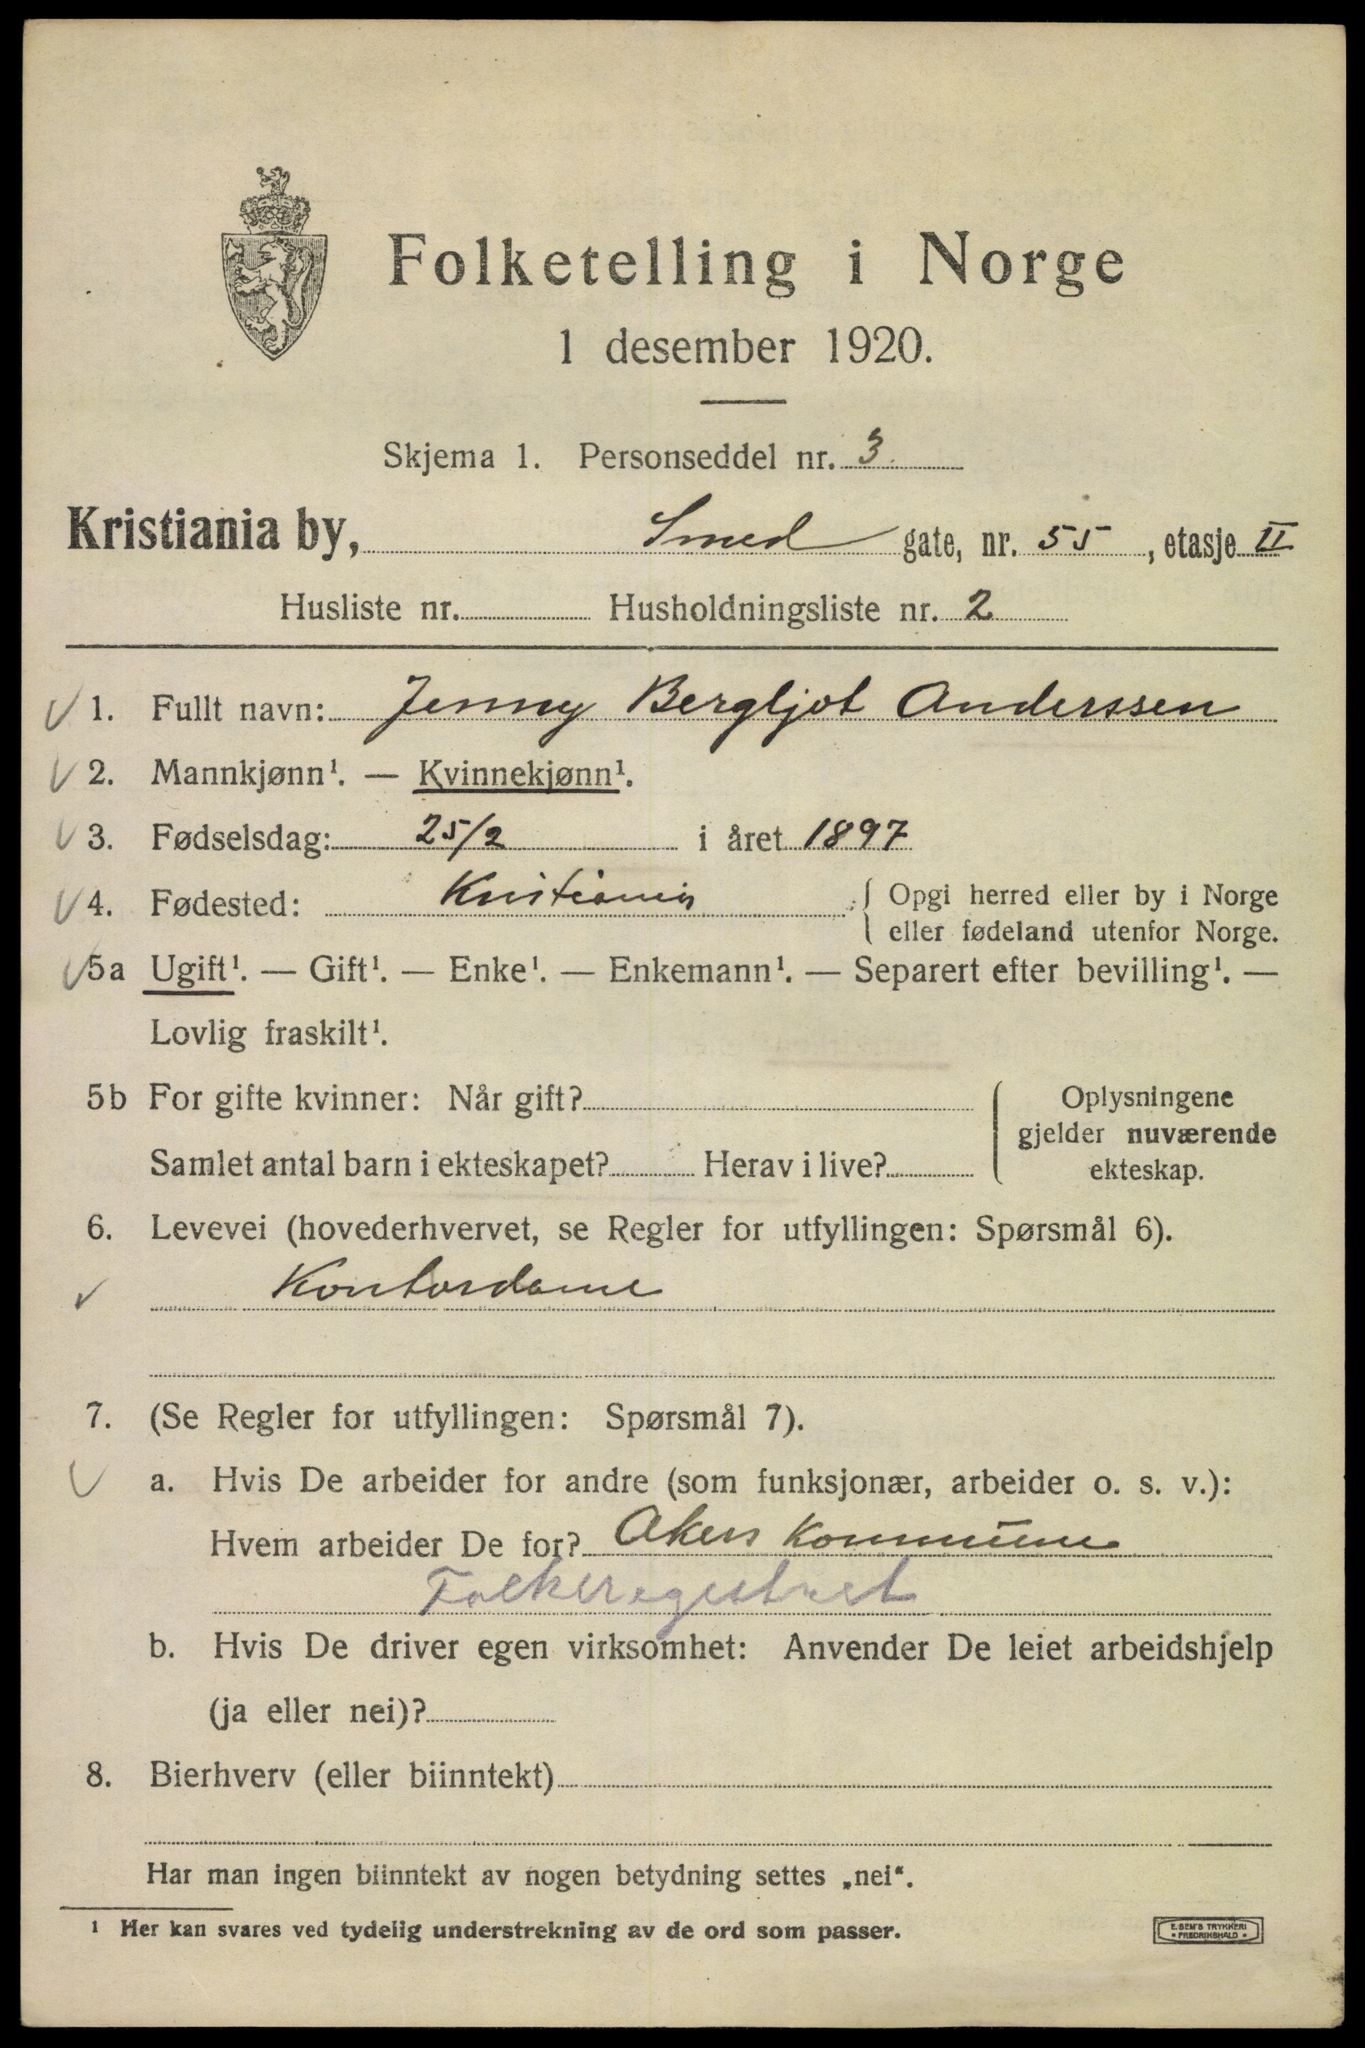 Folketelling i Norge
1 desember 1920.
Skjema 1. Personseddel nr. 3
Kristiania by, Smed gate, nr. 55, etasje II
Husliste nr. Husholdningsliste nr. 2
1. Fullt navn: Jenny Bergljot Anderssen
2. Mannkjønn¹. — Kvinnekjønn¹.
3. Fødselsdag: 25/2 i året 1897
4. Fødested: Kristiania { Opgi herred eller by i Norge
eller fødeland utenfor Norge.
5a Ugift¹. — Gift¹. — Enke¹. — Enkemann¹. — Separert efter bevilling¹. —
Lovlig fraskilt¹.
5b For gifte kvinner: Når gift?
Samlet antal barn i ekteskapet? Herav i live?
Oplysningene
gjelder nuværende
ekteskap.
6. Levevei (hovederhvervet, se Regler for utfyllingen: Spørsmål 6).
Kontordame
7. (Se Regler for utfyllingen: Spørsmål 7).
a. Hvis De arbeider for andre (som funksjonær, arbeider o. s. v.):
Hvem arbeider De for? Akers Kommune
Folkeregistret
b. Hvis De driver egen virksomhet: Anvender De leiet arbeidshjelp
(ja eller nei)?
8. Bierhverv (eller biinntekt)
Har man ingen biinntekt av nogen betydning settes „nei“.
¹ Her kan svares ved tydelig understrekning av de ord som passer.
E. SEM'S TRYKKERI
• FREDRIKSHALD •